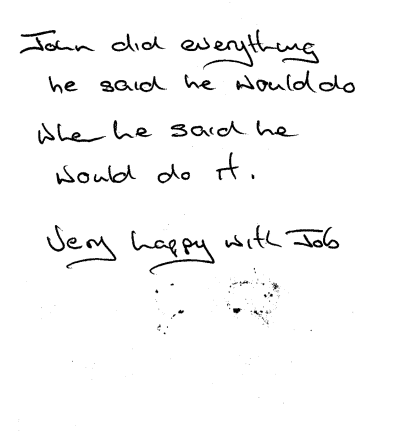 John did everything
he said he would do
when he said he
would do it.
Very happy with Job